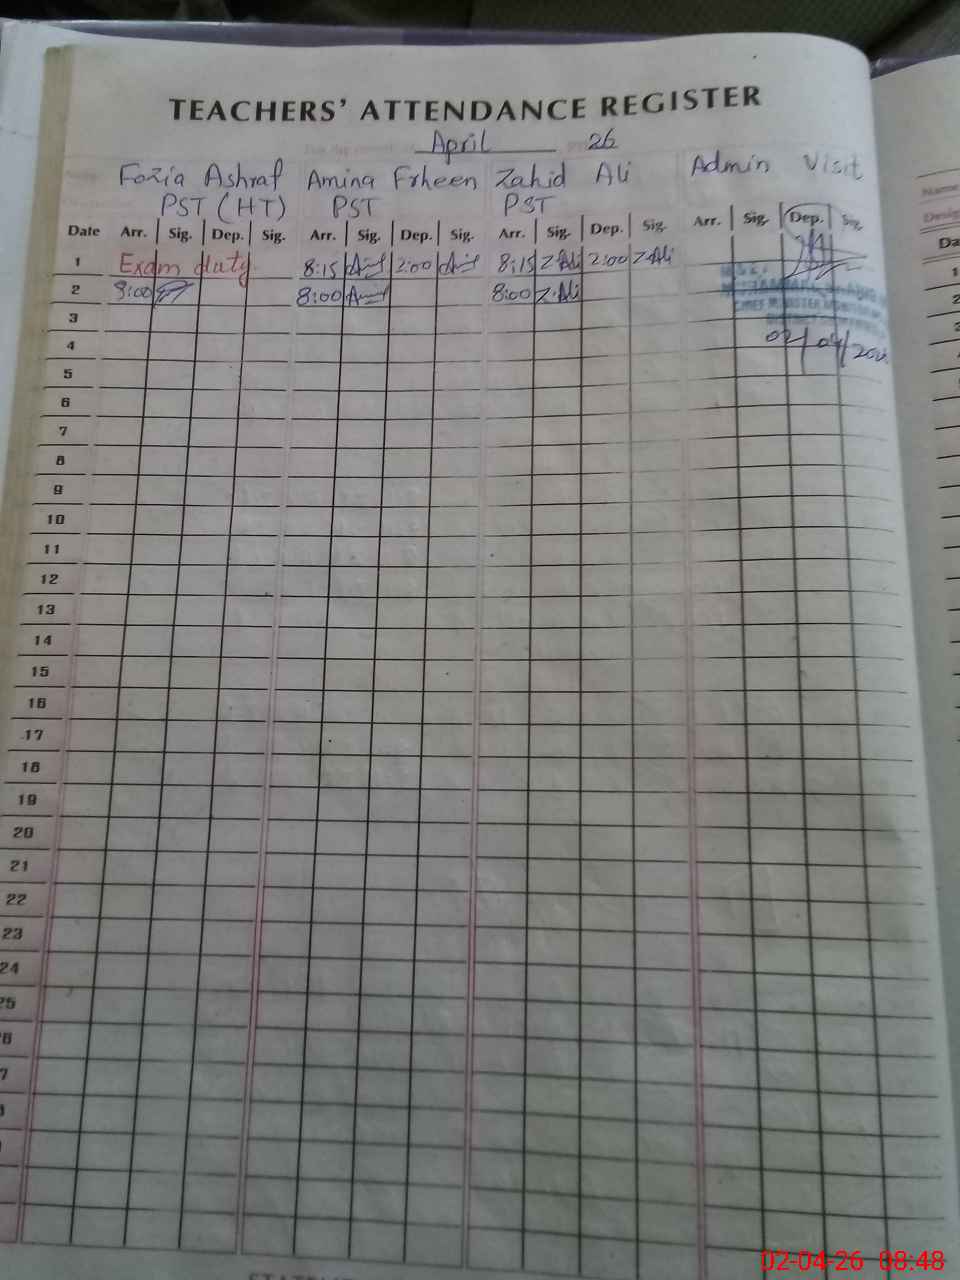 TEACHERS' ATTENDANCE REGISTER
April 26
Fozia Ashraf Amina Frheen Zahid Ali Admin Visit
PST (HT) PST PST
Date Arr. Sig. Dep. Sig. Arr. Sig. Dep. Sig. Arr. Sig. Dep. Sig. Arr. Sig. Dep. Sig.
1 Exam duty 8:15 2:00 8:15 Z.Ali 2:00 Z.Ali
2 8:00 8:00 8:00 Z.Ali
3
4 02/04/
5
6
7
8
9
10
11
12
13
14
15
16
17
18
19
20
21
22
23
24
Name
Desig
Da
1
2
02-04-26 08:48